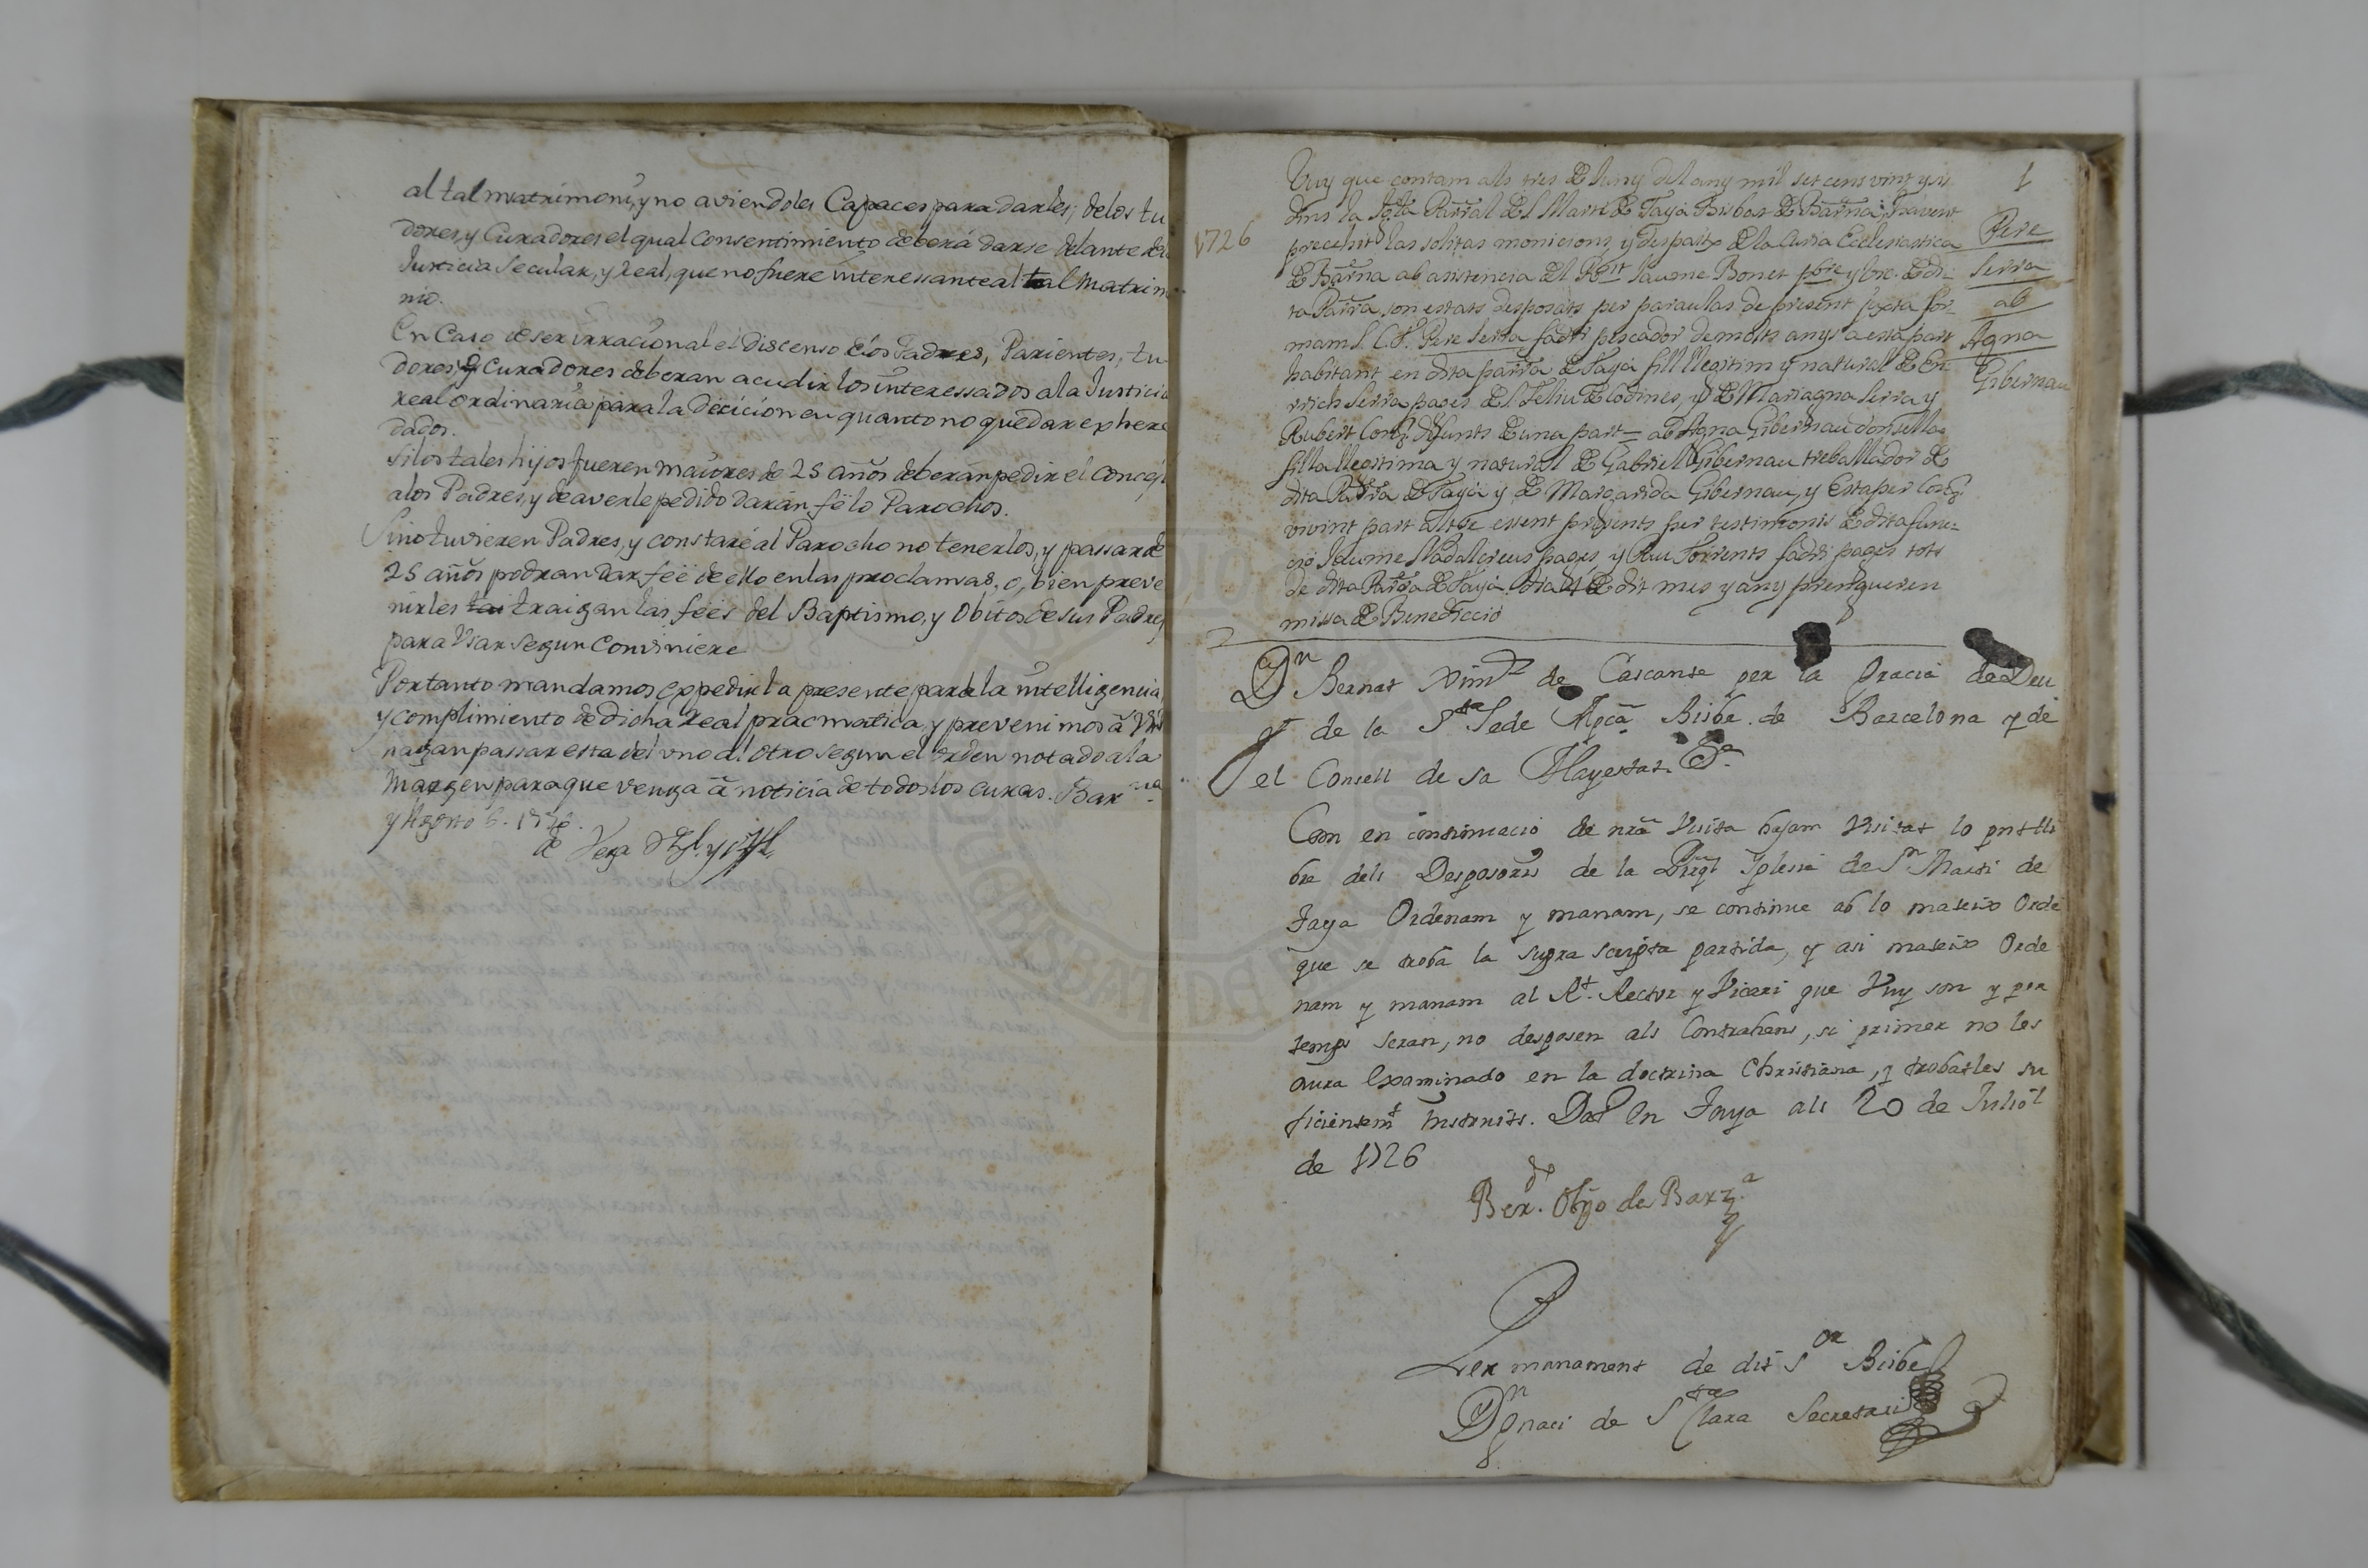 al tal matrimonì, y no aviendoles Capaces para darles, de los tu
dores, y Curadores el qual consentimiento deberá darse delante de la
Justicia Secular, y Real, que no fuere interessante al tal Matrim
nio.
En Caso de ser irracional el Discenso de los Padres, Parientes, tu-
dores, y Curadores deberan acudir los interessados a la Justicia
real ordinaria para la Decicion en quanto no quedar exhere
dados.
Si los tales hijos fueren maiores de 25 años deberan pedir el concejo
a los Padres, y de averle pedido daràn fë lo Parochos.
Si no tuvieren Padres, y constare al Parocho no tenerlos, y passar de
25 años podran dar feë de ello en las proclamas, o, bien preve
nirles traigan las feës del Baptismo, y Obitos de sus Padres
para Usar segun Conviniere
Por tanto mandamos expedir la presente para la intelligencia
y complimiento de dicha Real pracmatica, y prevenimos à
hagan passar esta del uno al otro segun el orden notado a la
margen para que venga à noticia de todos los curas. Barna
y Agosto 6.
de Vega
1
Vuy que contam als tres de Juny del any mil set cens vint y sis
dins la Iglã Parral de S. Marti de Tayà Bisbat de Barna; havent
1726
precehit las solitas monicions, y despatx de la Curia Ecclesiastica
de Barna ab asistencia del Rnt Jaume Bonet pbre y Vic. de di-
ta Parra son estats desposats per paraulas de present juxta for-
mam S. C. T. Pere Serra fadri pescador de molts anys a esta part
habitant en dita parra de Tayà fill llegitim y natural de En-
rrich Serra pages de S. Feliu de Codines, y de Mariagna Serra y
Rubert Conj. defunts de una part = ab Agna Gibernau donsella
filla llegitima y natural de Gabriel Gibernau treballador de
dita Parra de Tayà y de Margarida Gibernau, y Estaper Conj.
vivint part altre essent presents per testimonis de dita func-
ciò Jaume pages y Pau Torrents fadri pagès tots
de dita Parra de Tayà. de dit mes y any prengueren
missa de Benedicciò
Pere
Serra
ab
Agna
Gibernau
Dn Bernat Ximz de Cascante per la Gracia de Deu
y de la Sta Sede Apcã Bisbe de Barcelona y de
el Consell de sa Magestat &a
Com en continuació de nrã Visita hajam Visitat lo pnt lli
bre dels Desposoris de la Parrql Iglesia de Sn Marti de
Taya Ordenam y manam, se continue ab lo mateix Orde
que se troba la supra scripta partida, y asi mateix Orde
nam y manam al Rt. Rector y Vicari que Vuy son y per
temps seran, no desposen als Contrahens, si primer no les
aura Examinado en la doctrina Christiana, y trobatles su
ficientemt Instruits. Dat En Taya als 20 de Juliol
de 1726
Berdo. Obpo de Barza
Per manament de dit Sor Bisbe
Dn Ignaci de Sta Clara Secretari